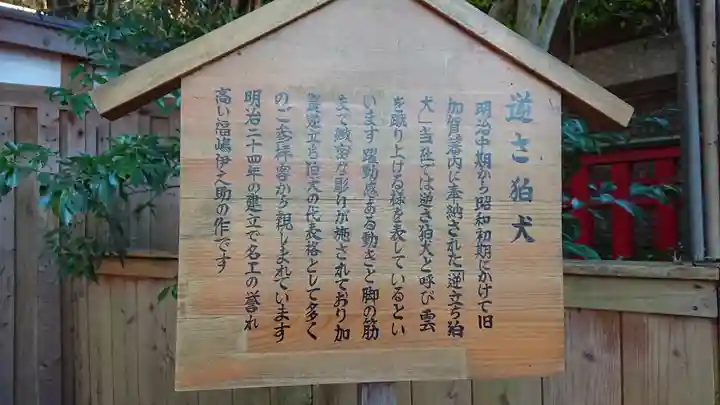 逆さ狛犬
明治中期から昭和初期にかけて旧
加賀藩内に奉納された「逆立ち狛
犬」当社では逆さ狛犬と呼び 雲
を蹴り上げる様を表しているとい
います 躍動感ある動きと脚の筋
まで緻密な彫りが施されており加
賀逆立ち狛犬の代表格として多く
のご参拝客から親しまれています
明治二十四年の建立で名工の誉れ
高い福嶋伊之助の作です